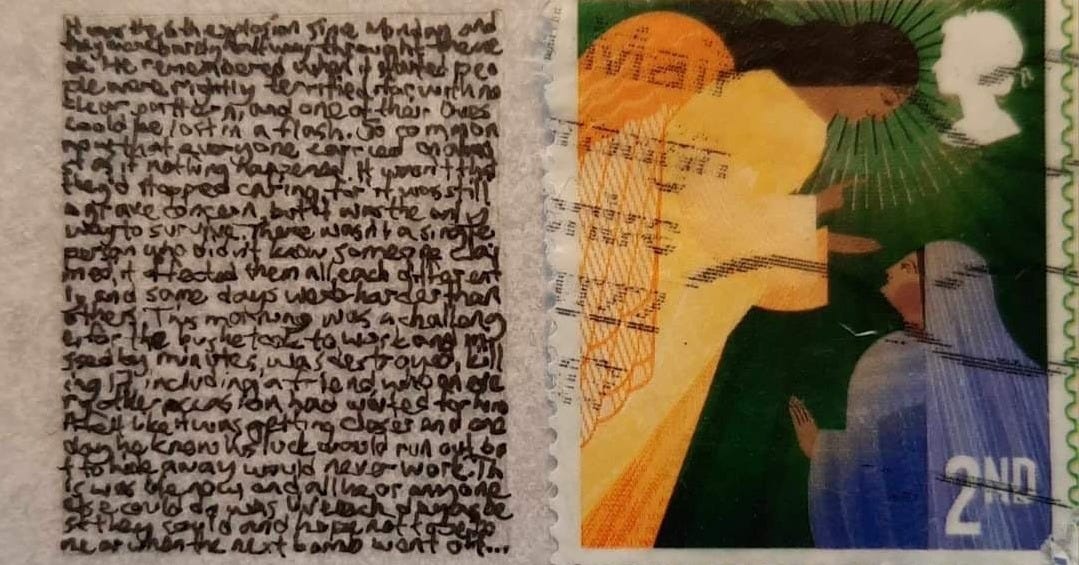 It was the 6th explosion since Monday and
they were barely halfway through the we
ek. He remembered when it started peo
ple were rightly terrified for with no
clear pattern, and one of their lives
could be lost in a flash. So common
now that everyone carried on
as if nothing happened. It wasn't that
they'd stopped caring for it was still
a grave concern, but it was the only
way to survive. There wasn't a single
person who didn't know someone clai
med, it affected them all each different
ly, and some days were harder than
others. This morning was a challeng
e for the bus he took to work and mi
ssed by minutes, was destroyed, kill
ing 17, including a friend who on eve
ry other occasion had waited for him
It felt like it was getting closer and one
day he knew his luck would run out bu
t to hide away would never work. Th
is was and all he or anyone
else could do was live each day as be
st they could and hope not to be to
near when the next bomb went off...
Mail
2ND